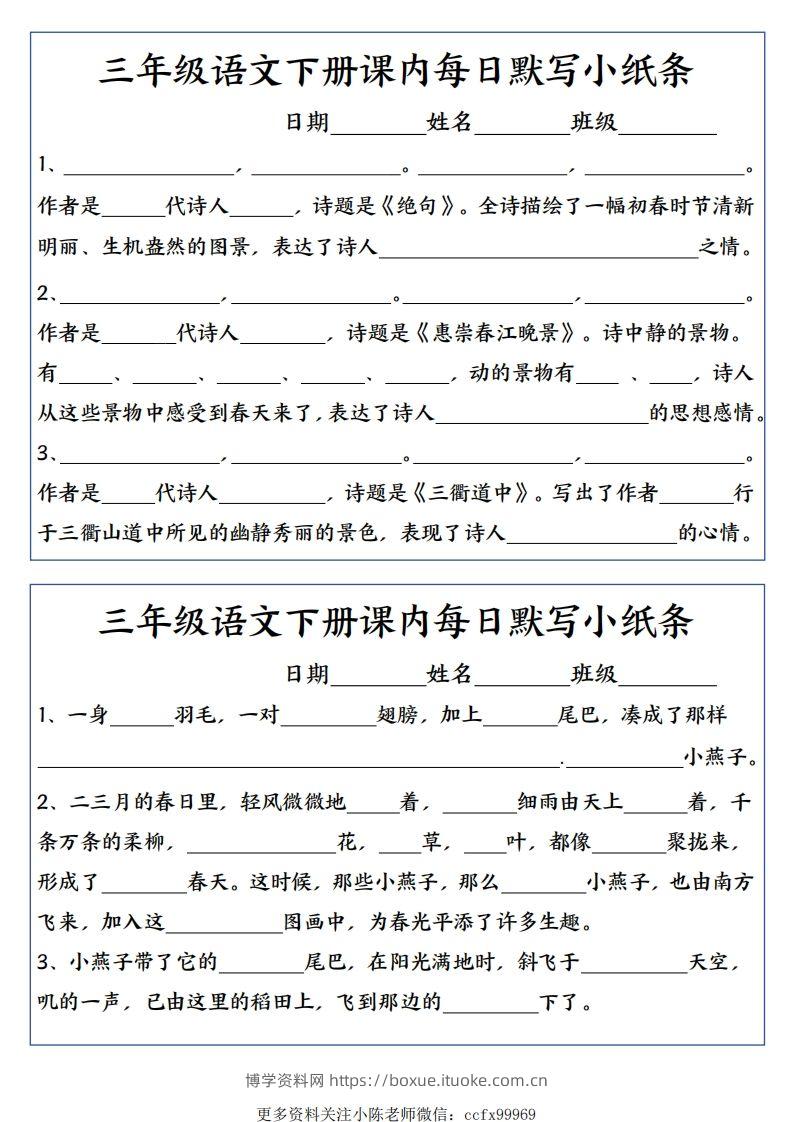 三年级语文下册课内每日默写小纸条
日期________姓名________班级________
1、________________，______________。______________，______________。
作者是______代诗人______，诗题是《绝句》。全诗描绘了一幅初春时节清新
明丽、生机盎然的图景，表达了诗人______________________________之情。
2、_______________，_______________。________________，_______________。
作者是_______代诗人________，诗题是《惠崇春江晚景》。诗中静的景物。
有_____、______、______、______、______，动的景物有____ 、____，诗人
从这些景物中感受到春天来了，表达了诗人____________________的思想感情。
3、_______________，________________。_______________，_______________。
作者是_____代诗人__________，诗题是《三衢道中》。写出了作者_______行
于三衢山道中所见的幽静秀丽的景色，表现了诗人________________的心情。
三年级语文下册课内每日默写小纸条
日期________姓名________班级________
1、一身______羽毛，一对_________翅膀，加上_______尾巴，凑成了那样
_________________________________________________.___________小燕子。
2、二三月的春日里，轻风微微地_____着，_______细雨由天上______着，千
条万条的柔柳，______________花，____草，____叶，都像_______聚拢来，
形成了________春天。这时候，那些小燕子，那么________小燕子，也由南方
飞来，加入这___________图画中，为春光平添了许多生趣。
3、小燕子带了它的________尾巴，在阳光满地时，斜飞于__________天空，
叽的一声，已由这里的稻田上，飞到那边的_________下了。
博学资料网 https://boxue.ituoke.com.cn
更多资料关注小陈老师微信：ccfx99969